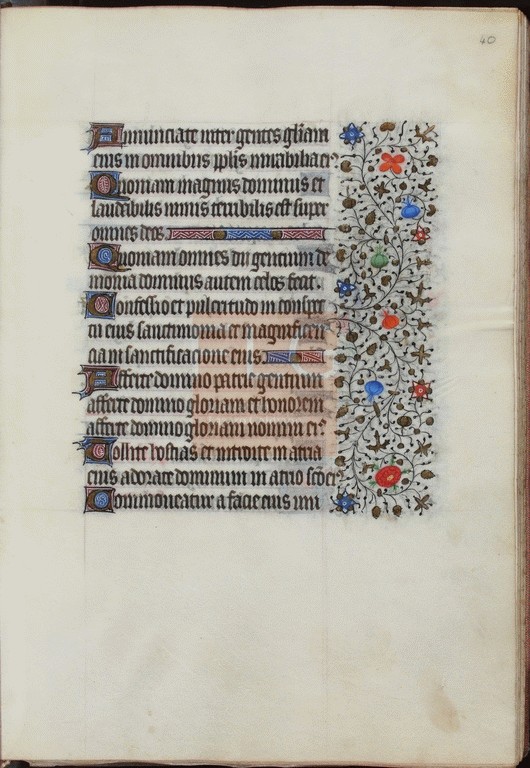 40
Annunciate inter gentes gl'iam
eius in omnibus pplis mirabilia ei9
Quoniam magnus dominus et
laudabilis nimis terribilis est super
omnes deos.
Quoniam omnes dii gentium de
monia dominus autem celos fecit.
Confessio et pulcritudo in conspe
tu eius sanctimonia et magnificen
cia in sanctificacione eius.
Afferte domino patrie gentium
afferte domino gloriam et honorem
afferte domino gloriam nomini ei9
Tollite hostias et introite in atria
eius adorate dominum in atrio sc̄o ei9
Commoveatur a facie eius uni